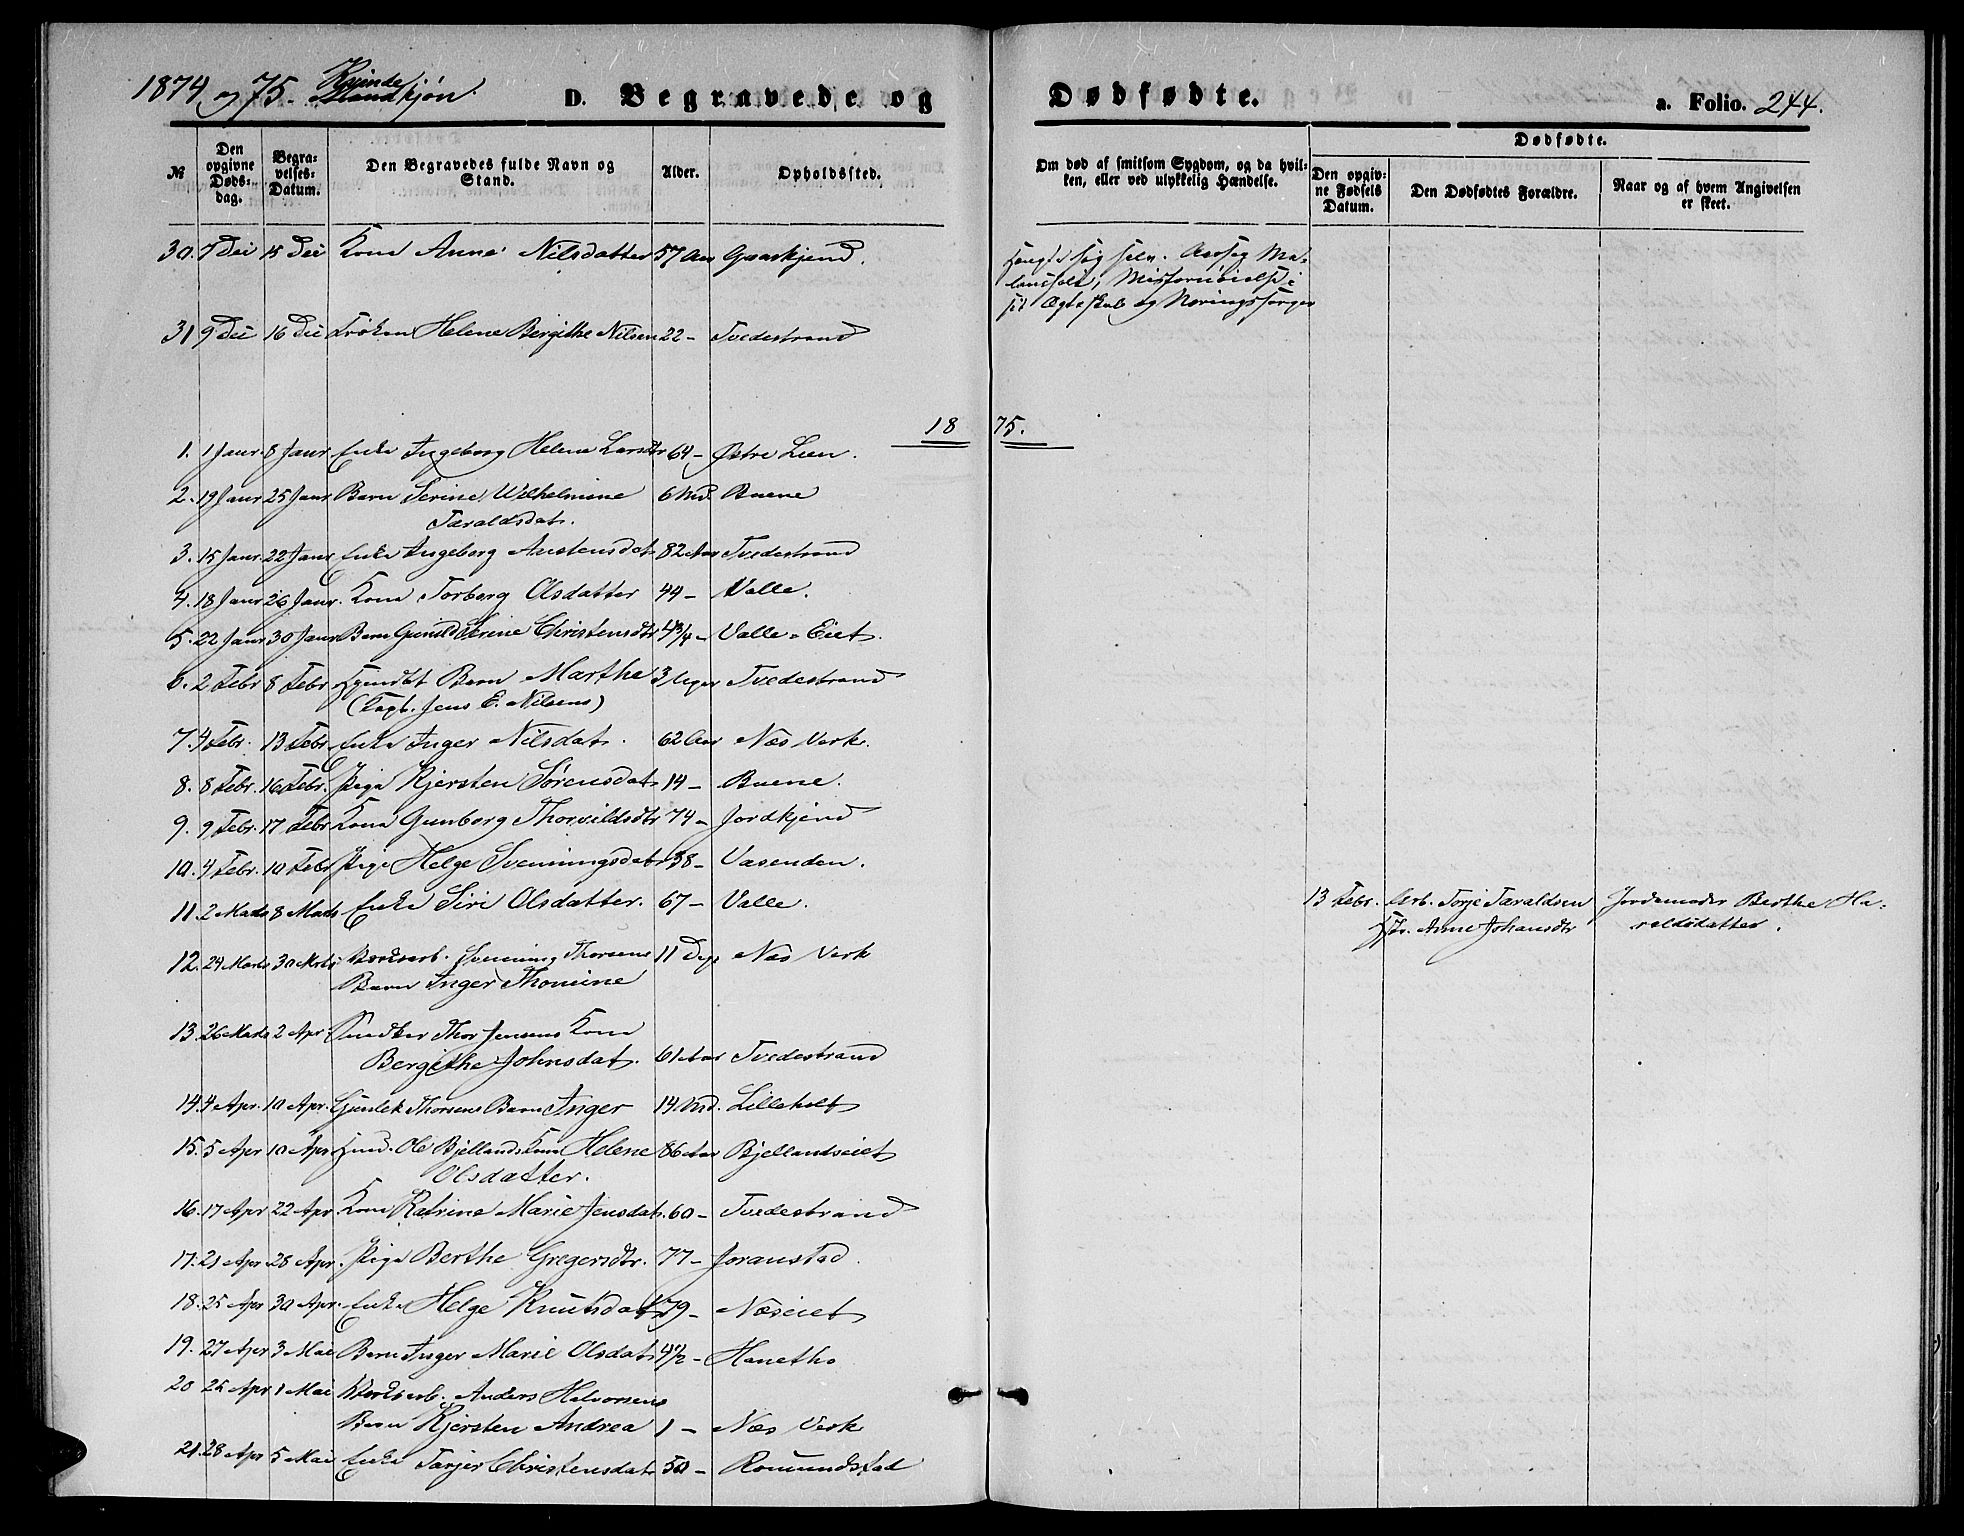 1874 og 75. Kvindekjøn. D. Begravede og Dødfødte. a. Folio. 244.
Dødfødte.
№ Den opgivne Døds-dag. Begra-velses-Datum. Den Begravedes fulde Navn og Stand. Alder. Opholdssted. Om død af smitsom Sygdom, og da hvil-ken, eller ved ulykkelig Hændelse. Den opgiv-ne Fødsels Datum. Den Dødfødtes Forældre. Naar og af hvem Angivelsen er skeet.
30. 7 Dec 15 Dec Kone Anne Nilsdatter 57 Aar Gaaskjend. Hengt sig selv. Aarsag Me-
lancholi, Misfornøielse i
sit Ægteskab og Næringssorger
31 9 Dec 16 Dec Frøken Helene Bergithe Nilsen 22 - Tvedestrand
1875.
1. 1 Janr. 8 Janr Enke Ingeborg Helene Larsdtr 64 - Østre Lien.
2. 19 Janr 25 Janr Barn Serine Wilhelmine 6 Md. Buene
Taraldsdat.
3. 15 Janr. 22 Janr Enke Ingeborg Austensdat 82 Aar Tvedestrand
4. 18 Janr 26 Janr. Kone Torborg Olsdatter 44 - Valle.
5. 22 Janr 30 Janr Barn Gunild Serine Christensdtr 4 3/4 - Valle-Eiet.
6. 2 Febr 8 Febr Barn Marthe 3 Uger Tvedestrand
(Jens E. Nilsens)
7. 4 Febr. 13 Febr Enke Inger Nilsdat. 62 Aar Næs Verk.
8. 8 Febr. 16 Febr. Pige Kjersten Sørensdat 14 - Buene.
9. 9 Febr. 17 Febr Kone Gunborg Thorvildsdtr 74 - Jordkjend
10. 4 Febr. 10 Febr Pige Helge Sveningsdat 38 - Vasenden.
11. 2 Marts 8 Marts Enke Siri Olsdatter. 67 - Valle. 13 Febr. Arb. Torje Taraldsen Jordemoder Berthe Ha-
Hstr. Anne Johansdtr raldsdatter.
12. 24 Marts 30 Marts Værksarb. Svenning Thorsens 11 Dge Næs Verk
Barn Inger Thomine
13. 26 Marts 2 Apr. Snedker Thor Jensens Kone
Bergithe Johnsdat. 61 Aar Tvedestrand
14. 4 Apr. 10 Apr. Gunlek Thorsens Barn Inger 14 Md. Lilleholt
15. 5 Apr 10 Apr Husm. Ole Bjellands Kone Helene 86 Aar Bjellandseiet
Olsdatter.
16. 17 Apr 22 Apr Kone Katrine Marie Jensdat. 60 - Tvedestrand
17. 21 Apr 28 Apr. Pige Berthe Gregersdtr. 77 - Joranstad.
18. 25 Apr 30 Apr. Enke Helge Knutsdat 79 - Næseiet
19. 27 Apr 3 Mai Barn Inger Marie Olsdat 4 1/2 - Hanetho
20 25 Apr 1 Mai Værksarb. Anders Halvorsens
Barn Kjersten Andrea 1 - Næs Verk
21. 28 Apr 5 Mai Enke Tarjer Christensdat 50 - Romundstad